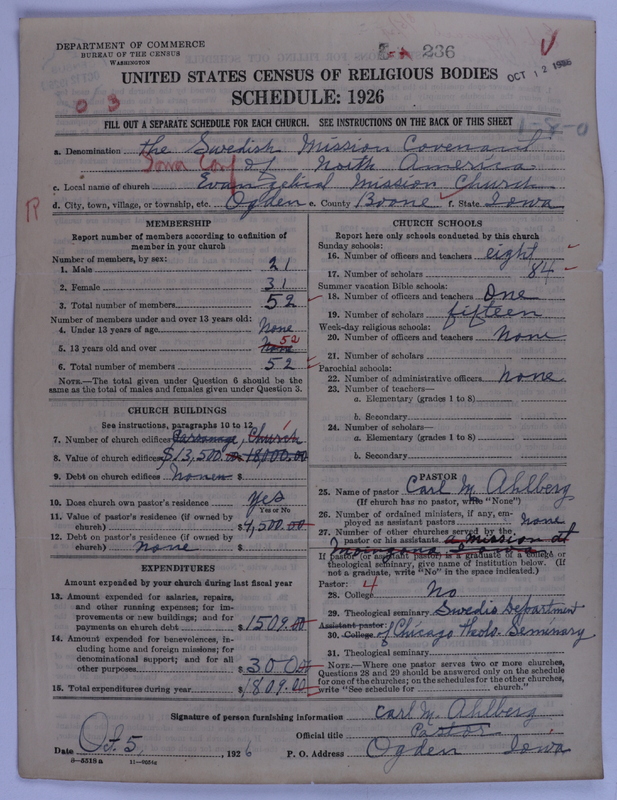 DEPARTMENT OF COMMERCE
BUREAU OF THE CENSUS
WASHINGTON
236
OCT 12 1926
UNITED STATES CENSUS OF RELIGIOUS BODIES
SCHEDULE: 1926
0 3
1-8-0
FILL OUT A SEPARATE SCHEDULE FOR EACH CHURCH. SEE INSTRUCTIONS ON THE BACK OF THIS SHEET
a. Denomination the Swedish Mission Covenant
Iowa Conf of North America
c. Local name of church Evangelical Mission Church
R
d. City, town, village, or township, etc. Ogden e. County Boone f. State Iowa
MEMBERSHIP
Report number of members according to definition of
member in your church
Number of members, by sex:
1. Male 21
2. Female 31
3. Total number of members 52
Number of members under and over 13 years old:
4. Under 13 years of age None
5. 13 years old and over None 52
6. Total number of members 52
NOTE.—The total given under Question 6 should be the
same as the total of males and females given under Question 3.
CHURCH BUILDINGS
See instructions, paragraphs 10 to 12
7. Number of church edifices Parsonage, Church
8. Value of church edifices $13,500.00 18,000.00
9. Debt on church edifices None $
10. Does church own pastor's residence yes
Yes or No
11. Value of pastor's residence (if owned by
church) $4,500.00
12. Debt on pastor's residence (if owned by
church) None $
EXPENDITURES
Amount expended by your church during last fiscal year
13. Amount expended for salaries, repairs,
and other running expenses; for im-
provements or new buildings; and for
payments on church debt $1509.00
14. Amount expended for benevolences, in-
cluding home and foreign missions; for
denominational support; and for all
other purposes $300.00
15. Total expenditures during year $1,809.00
CHURCH SCHOOLS
Report here only schools conducted by this church
Sunday schools:
16. Number of officers and teachers eight
17. Number of scholars 84
Summer vacation Bible schools:
18. Number of officers and teachers One
19. Number of scholars fifteen
Week-day religious schools:
20. Number of officers and teachers None
21. Number of scholars
Parochial schools:
22. Number of administrative officers None
23. Number of teachers—
a. Elementary (grades 1 to 8)
b. Secondary
24. Number of scholars—
a. Elementary (grades 1 to 8)
b. Secondary
PASTOR
25. Name of pastor Carl M. Ahlberg
(If church has no pastor, write "None")
26. Number of ordained ministers, if any, em-
ployed as assistant pastors None
27. Number of other churches served by the
pastor or his assistants a mission at
If pastor (or assistant pastor) is a graduate of a college or
theological seminary, give name of institution below. (If
not a graduate, write "No" in the space indicated.)
Pastor: 4
28. College No
29. Theological seminary Swedis Department
Assistant pastor:
30. College of Chicago Theolo. Seminary
31. Theological seminary
NOTE.—Where one pastor serves two or more churches,
Questions 28 and 29 should be answered only on the schedule
for one of the churches; on the schedules for the other churches,
write "See schedule for church."
Signature of person furnishing information Carl M. Ahlberg
Official title Pastor
Date Oct. 5, 1926 P. O. Address Ogden Iowa
8—5518 a 11—9034a